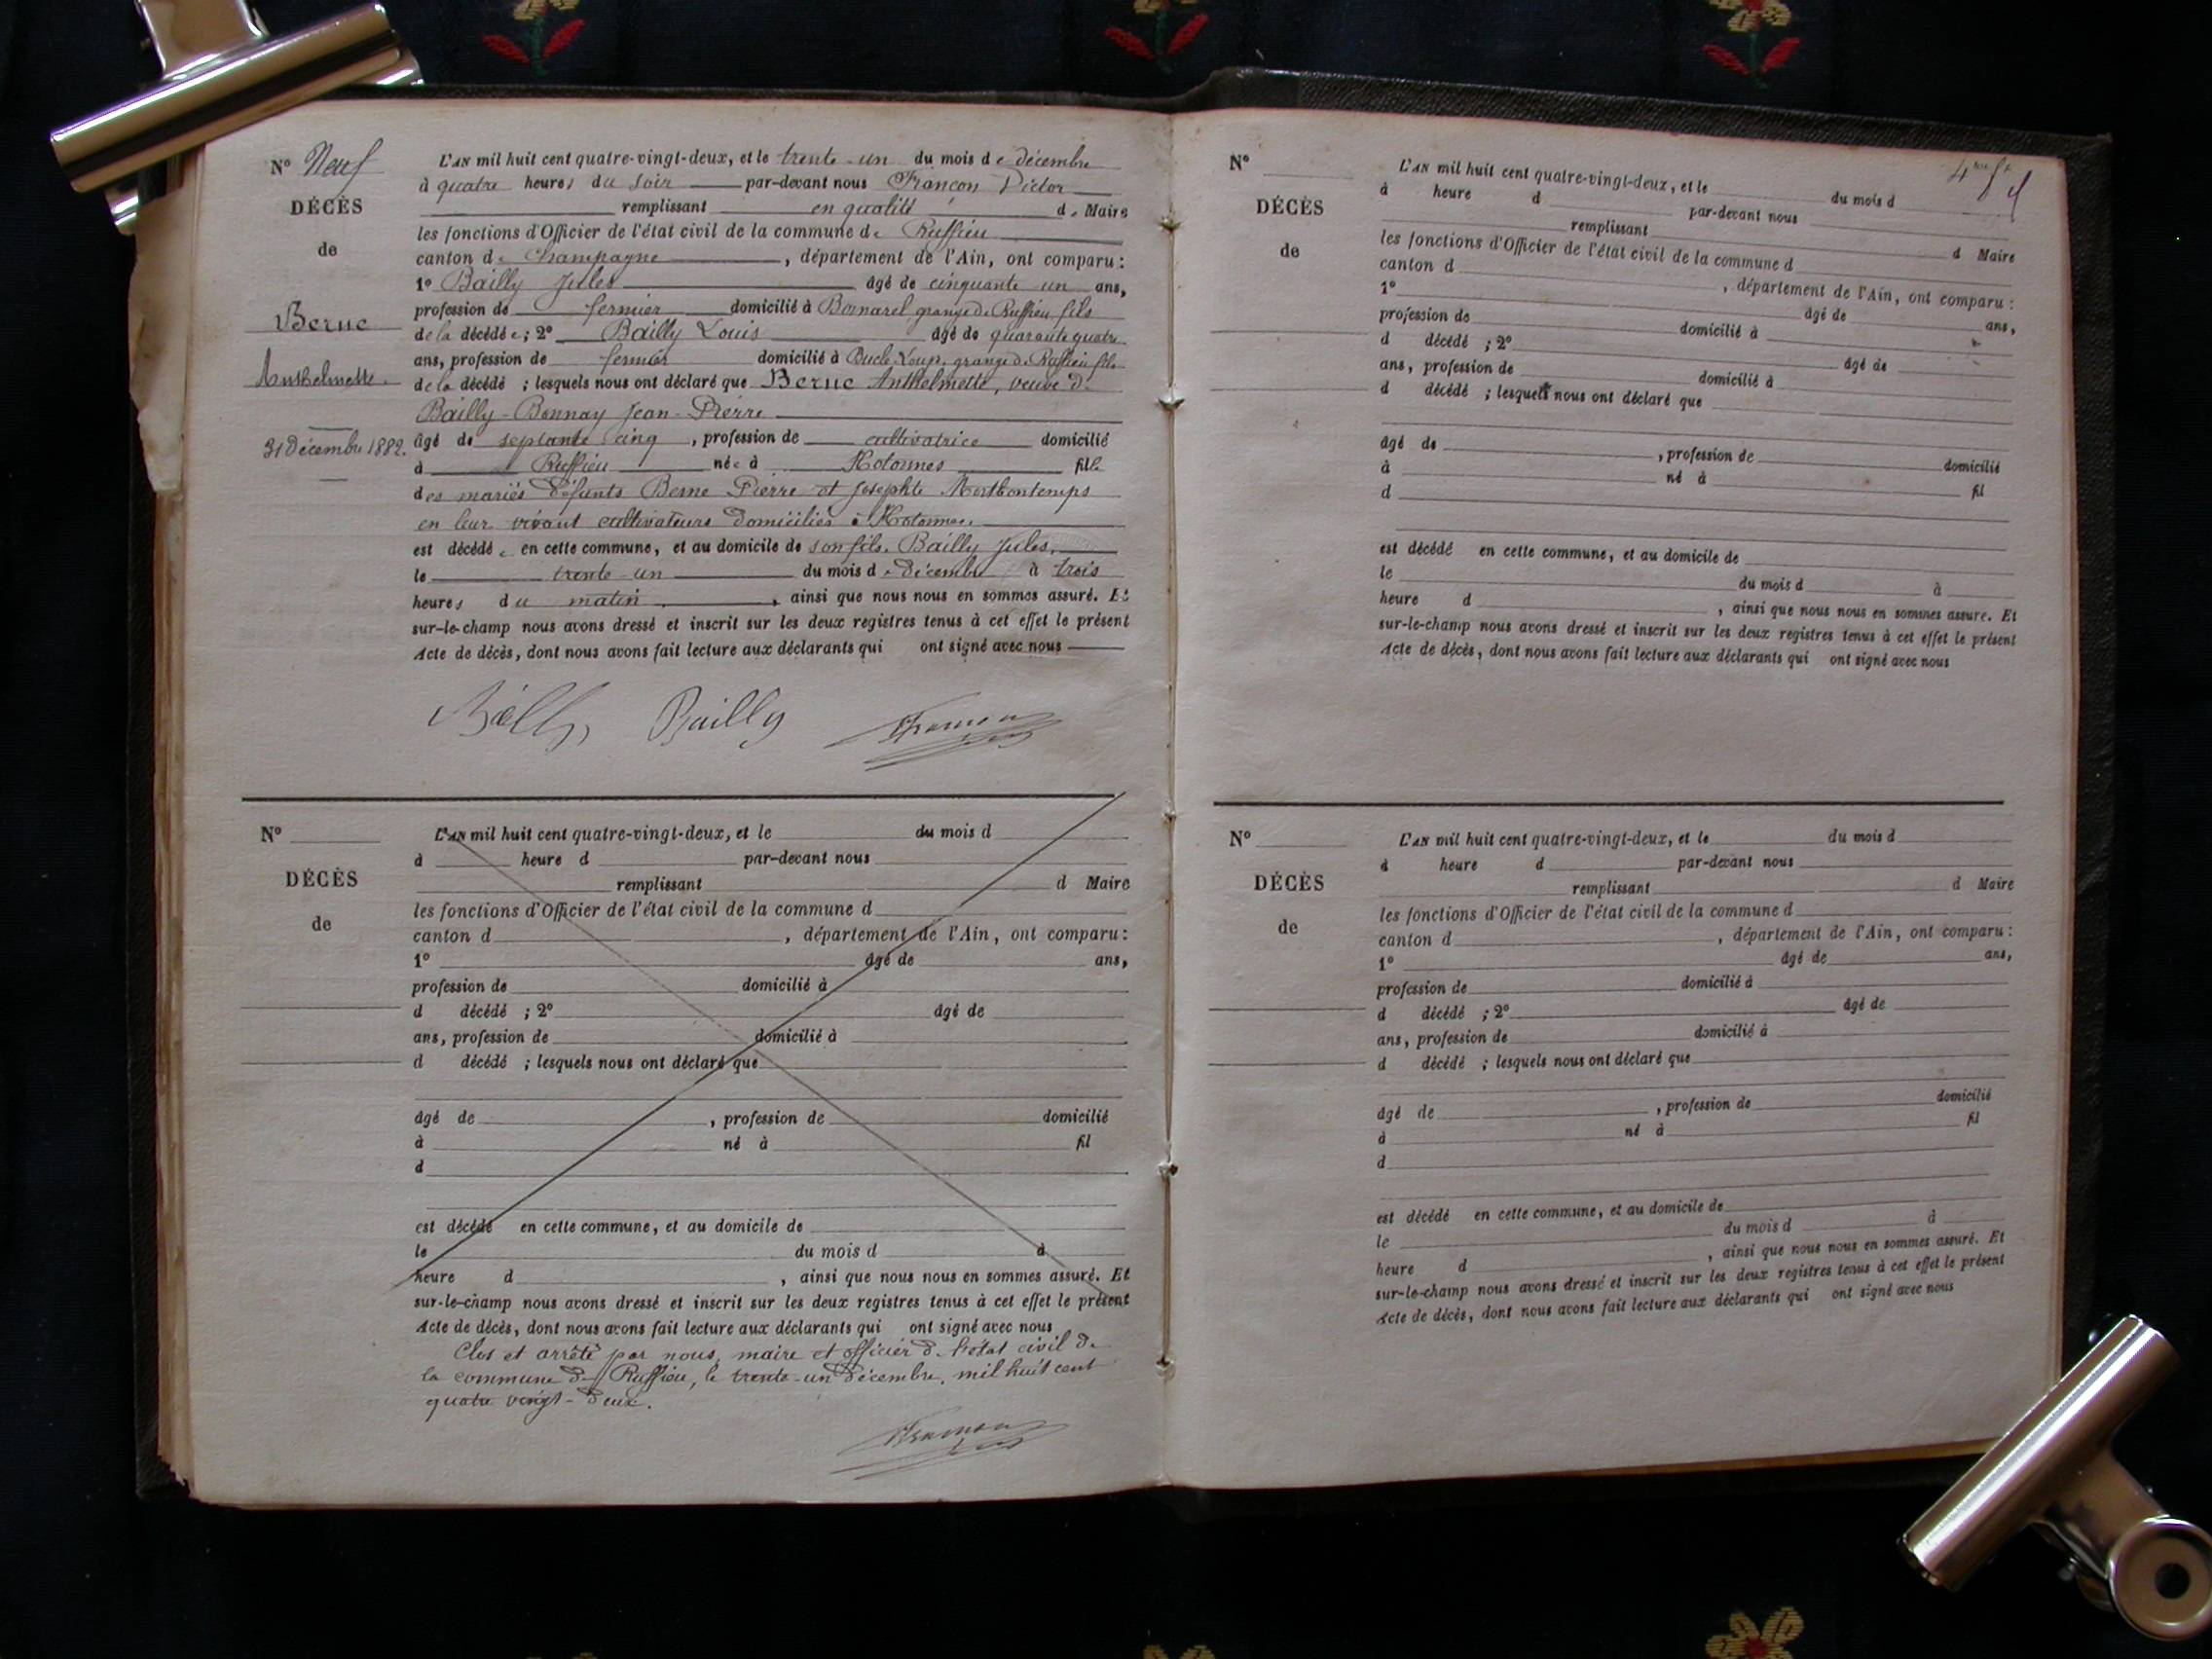 N° Neuf
DÉCÈS
de
Berne
Anthelmette.
31 Décembre 1882.
L'AN mil huit cent quatre-vingt-deux, et le trente-un du mois de décembre
à quatre heures du soir par-devant nous Françon Victor
remplissant en qualité de Maire
les fonctions d'Officier de l'état civil de la commune de Ruffieu
canton de Champagne, département de l'Ain, ont comparu :
1° Bailly Jules âgé de cinquante un ans,
profession de fermier domicilié à Bornarel grange de Ruffieu, fils
de la décédée ; 2° Bailly Louis âgé de quarante quatre
ans, profession de fermier domicilié à Loup, grange de Ruffieu fils
de la décédé ; lesquels nous ont déclaré que Berne Anthelmette, veuve de
Bailly-Bonnay Jean-Pierre
âgé de septante cinq, profession de cultivatrice domicilié
à Ruffieu née à Hotonnes fille
des mariés défunts Berne Pierre et Josephte
en leur vivant cultivateurs domiciliés à Hotonnes.
est décédée en cette commune, et au domicile de son fils, Bailly Jules,
le trente-un du mois de Décembre à trois
heures du matin, ainsi que nous nous en sommes assuré. Et
sur-le-champ nous avons dressé et inscrit sur les deux registres tenus à cet effet le présent
Acte de décès, dont nous avons fait lecture aux déclarants qui ont signé avec nous
Bailly Françon
N°
DÉCÈS
de
L'AN mil huit cent quatre-vingt-deux, et le du mois d
à heure d par-devant nous
remplissant d Maire
les fonctions d'Officier de l'état civil de la commune d
canton d , département de l'Ain, ont comparu :
1° âgé de ans,
profession de domicilié à
d décédé ; 2° âgé de
ans, profession de domicilié à
d décédé ; lesquels nous ont déclaré que
âgé de , profession de domicilié
à né à fil
d
est décédé en cette commune, et au domicile de
le du mois d à
heure d , ainsi que nous nous en sommes assuré. Et
sur-le-champ nous avons dressé et inscrit sur les deux registres tenus à cet effet le présent
Acte de décès, dont nous avons fait lecture aux déclarants qui ont signé avec nous
Clos et arrêté par nous, maire et officier de l'état civil de
la commune de Ruffieu, le trente-un décembre, mil huit cent
quatre vingt-deux.
Françon
N°
DÉCÈS
de
L'AN mil huit cent quatre-vingt-deux, et le du mois d
à heure d par-devant nous
remplissant d Maire
les fonctions d'Officier de l'état civil de la commune d
canton d , département de l'Ain, ont comparu :
1° âgé de ans,
profession de domicilié à
d décédé ; 2° âgé de
ans, profession de domicilié à
d décédé ; lesquels nous ont déclaré que
âgé de , profession de domicilié
à né à fil
d
est décédé en cette commune, et au domicile de
le du mois d à
heure d , ainsi que nous nous en sommes assuré. Et
sur-le-champ nous avons dressé et inscrit sur les deux registres tenus à cet effet le présent
Acte de décès, dont nous avons fait lecture aux déclarants qui ont signé avec nous
N°
DÉCÈS
de
L'AN mil huit cent quatre-vingt-deux, et le du mois d
à heure d par-devant nous
remplissant d Maire
les fonctions d'Officier de l'état civil de la commune d
canton d , département de l'Ain, ont comparu :
1° âgé de ans,
profession de domicilié à
d décédé ; 2° âgé de
ans, profession de domicilié à
d décédé ; lesquels nous ont déclaré que
âgé de , profession de domicilié
à né à fil
d
est décédé en cette commune, et au domicile de
le du mois d à
heure d , ainsi que nous nous en sommes assuré. Et
sur-le-champ nous avons dressé et inscrit sur les deux registres tenus à cet effet le présent
Acte de décès, dont nous avons fait lecture aux déclarants qui ont signé avec nous